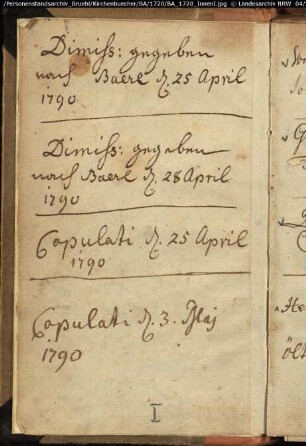 /Personenstandsarchiv_Bruehl/Kirchenbuecher/BA/1720/BA_1720_InnenI.jpg © Landesarchiv NRW 04/
Dimiss: gegeben
nach Baerl d. 25 April
1790
Dimiss: gegeben
nach Baerl d. 28 April
1790
Copulati d. 25 April
1790
Copulati d. 3. Maj
1790
I